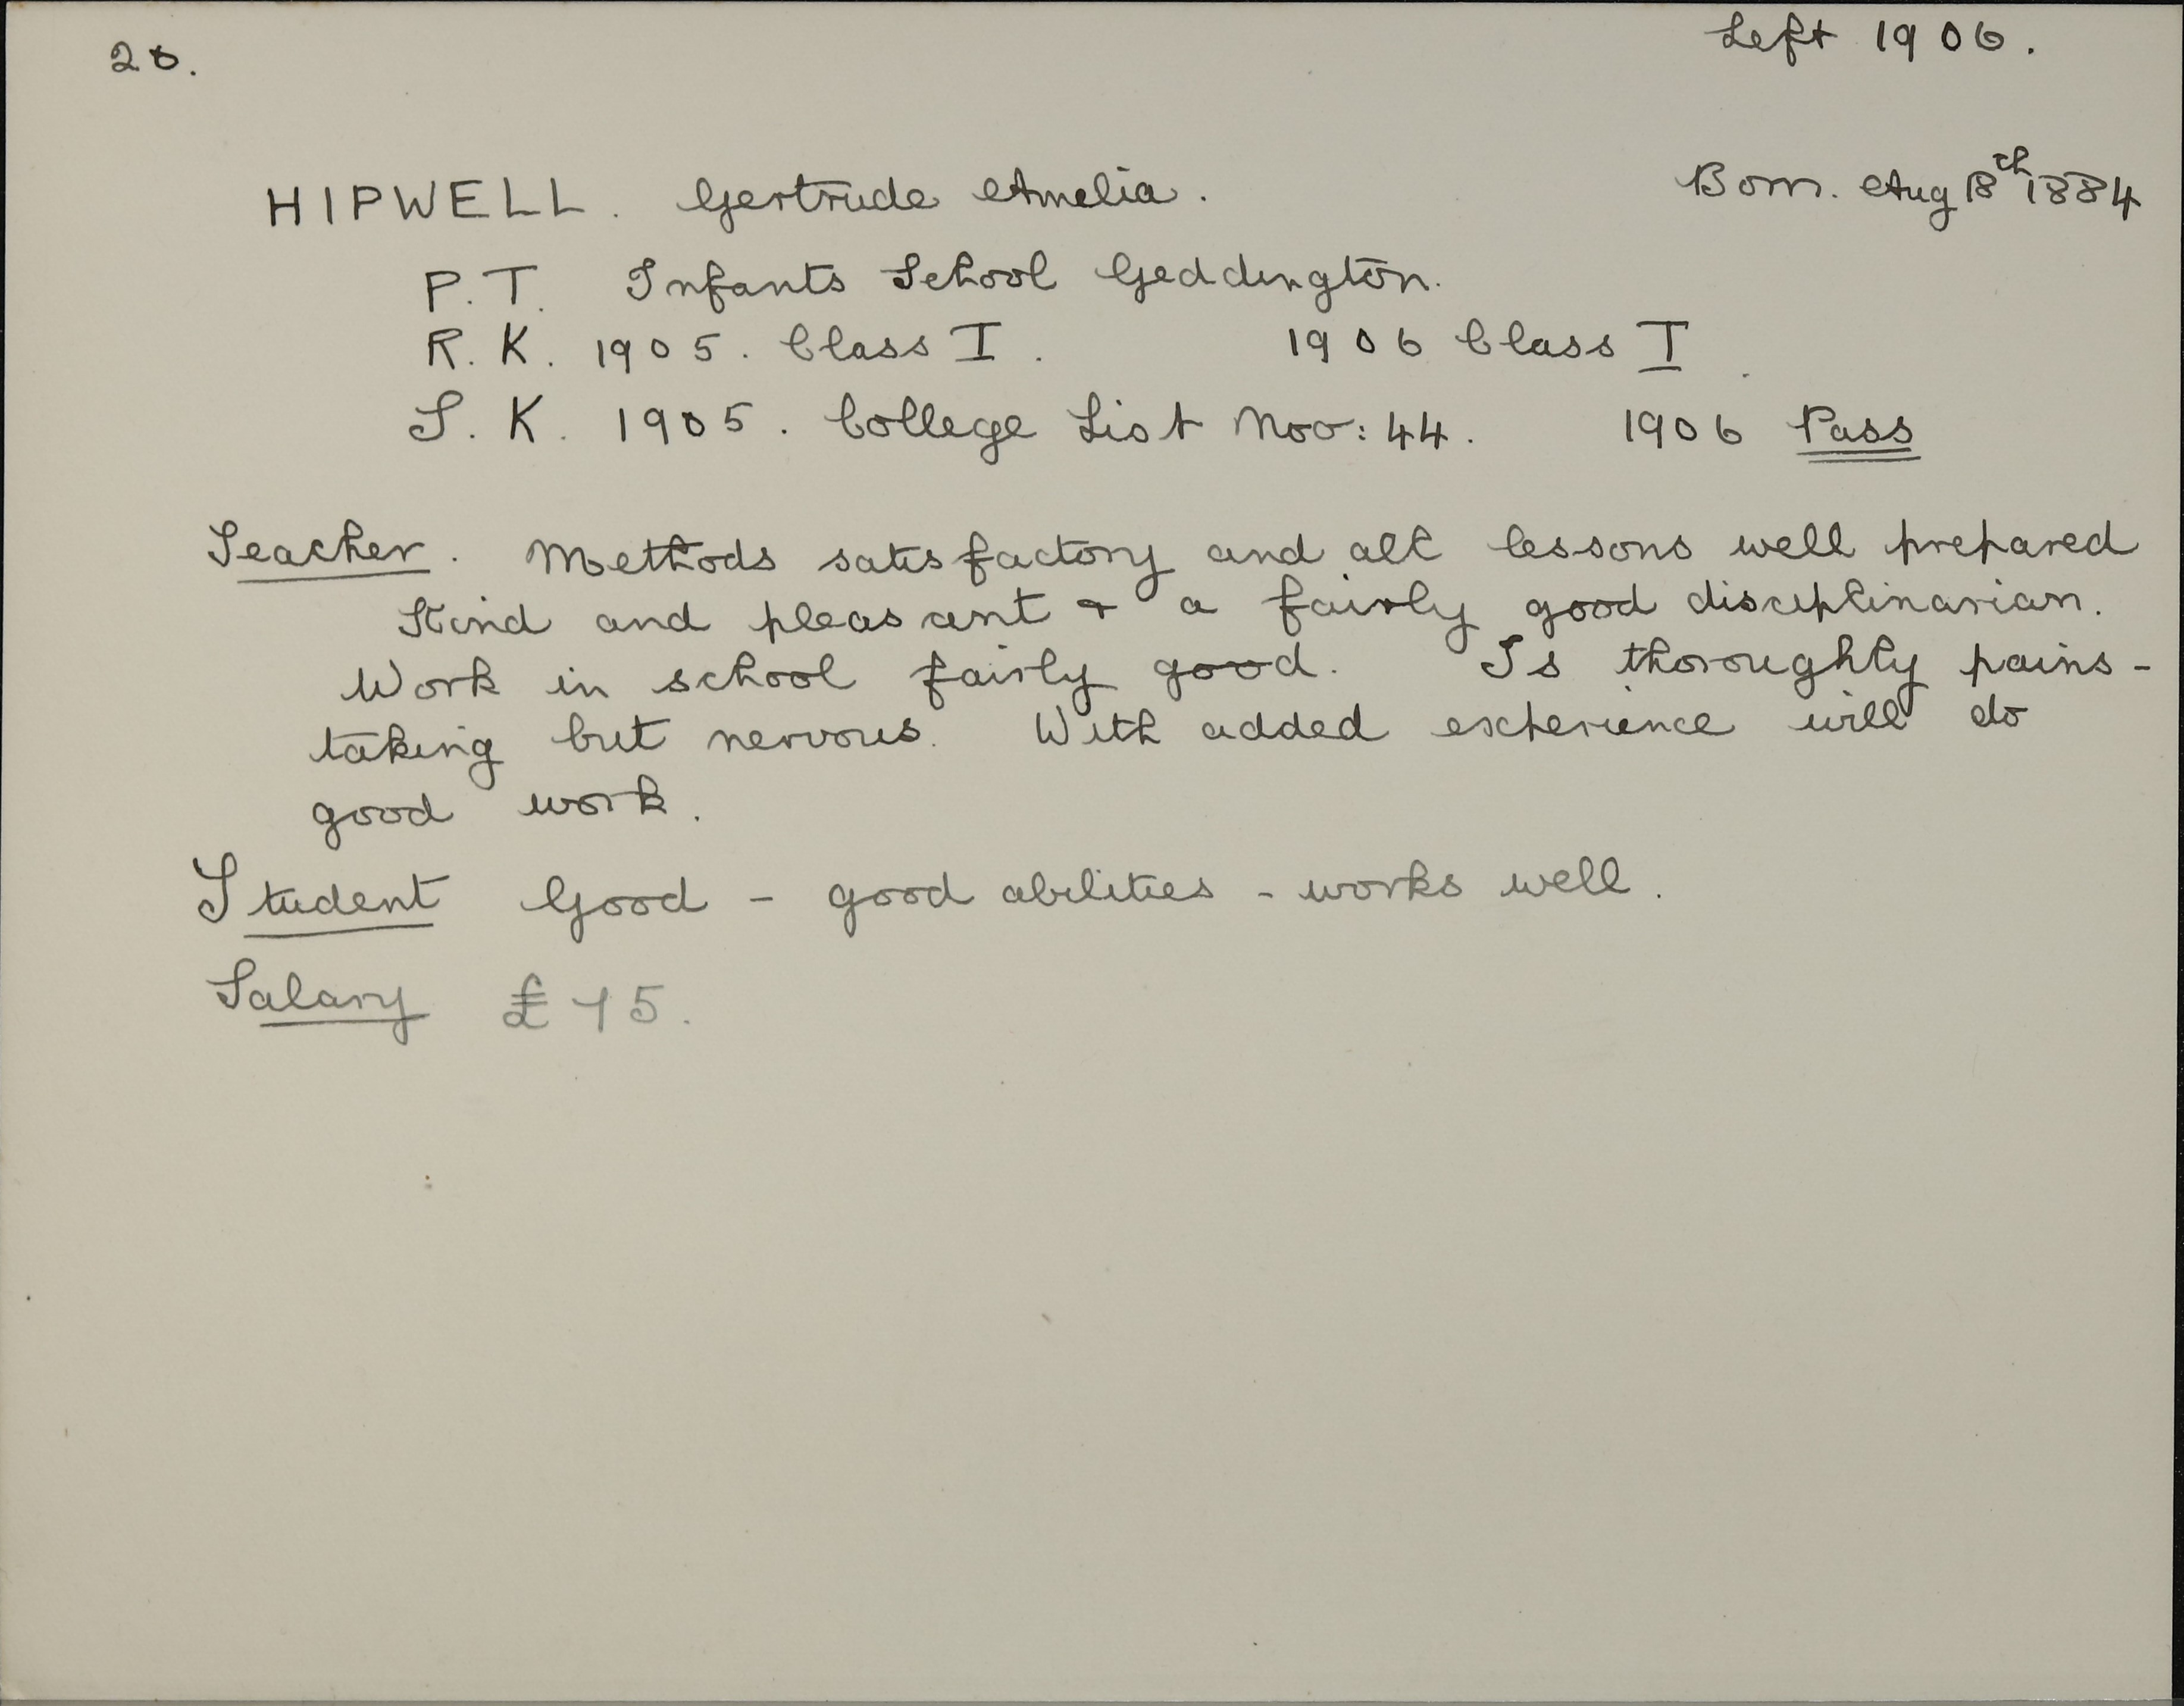 20. Left 1906.
HIPWELL. Gertrude Amelia. Born. Aug 18th 1884
P.T. Infants School Geddington.
R.K. 1905. Class I. 1906 Class I.
S.K. 1905. College List Noo: 44. 1906 Pass
Teacher. Methods satisfactory and all lessons well prepared
Kind and pleasant + a fairly good disciplinarian.
Work in school fairly good. Is thoroughly pains-
taking but nervous. With added experience will do
good work.
Student Good - good abilities - works well.
Salary £75.